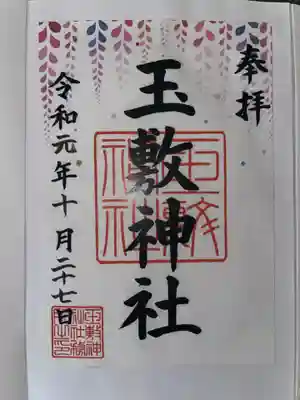 奉拝
玉敷神社
令和元年十月二十七日
玉敷神社
玉敷神社社務所之印